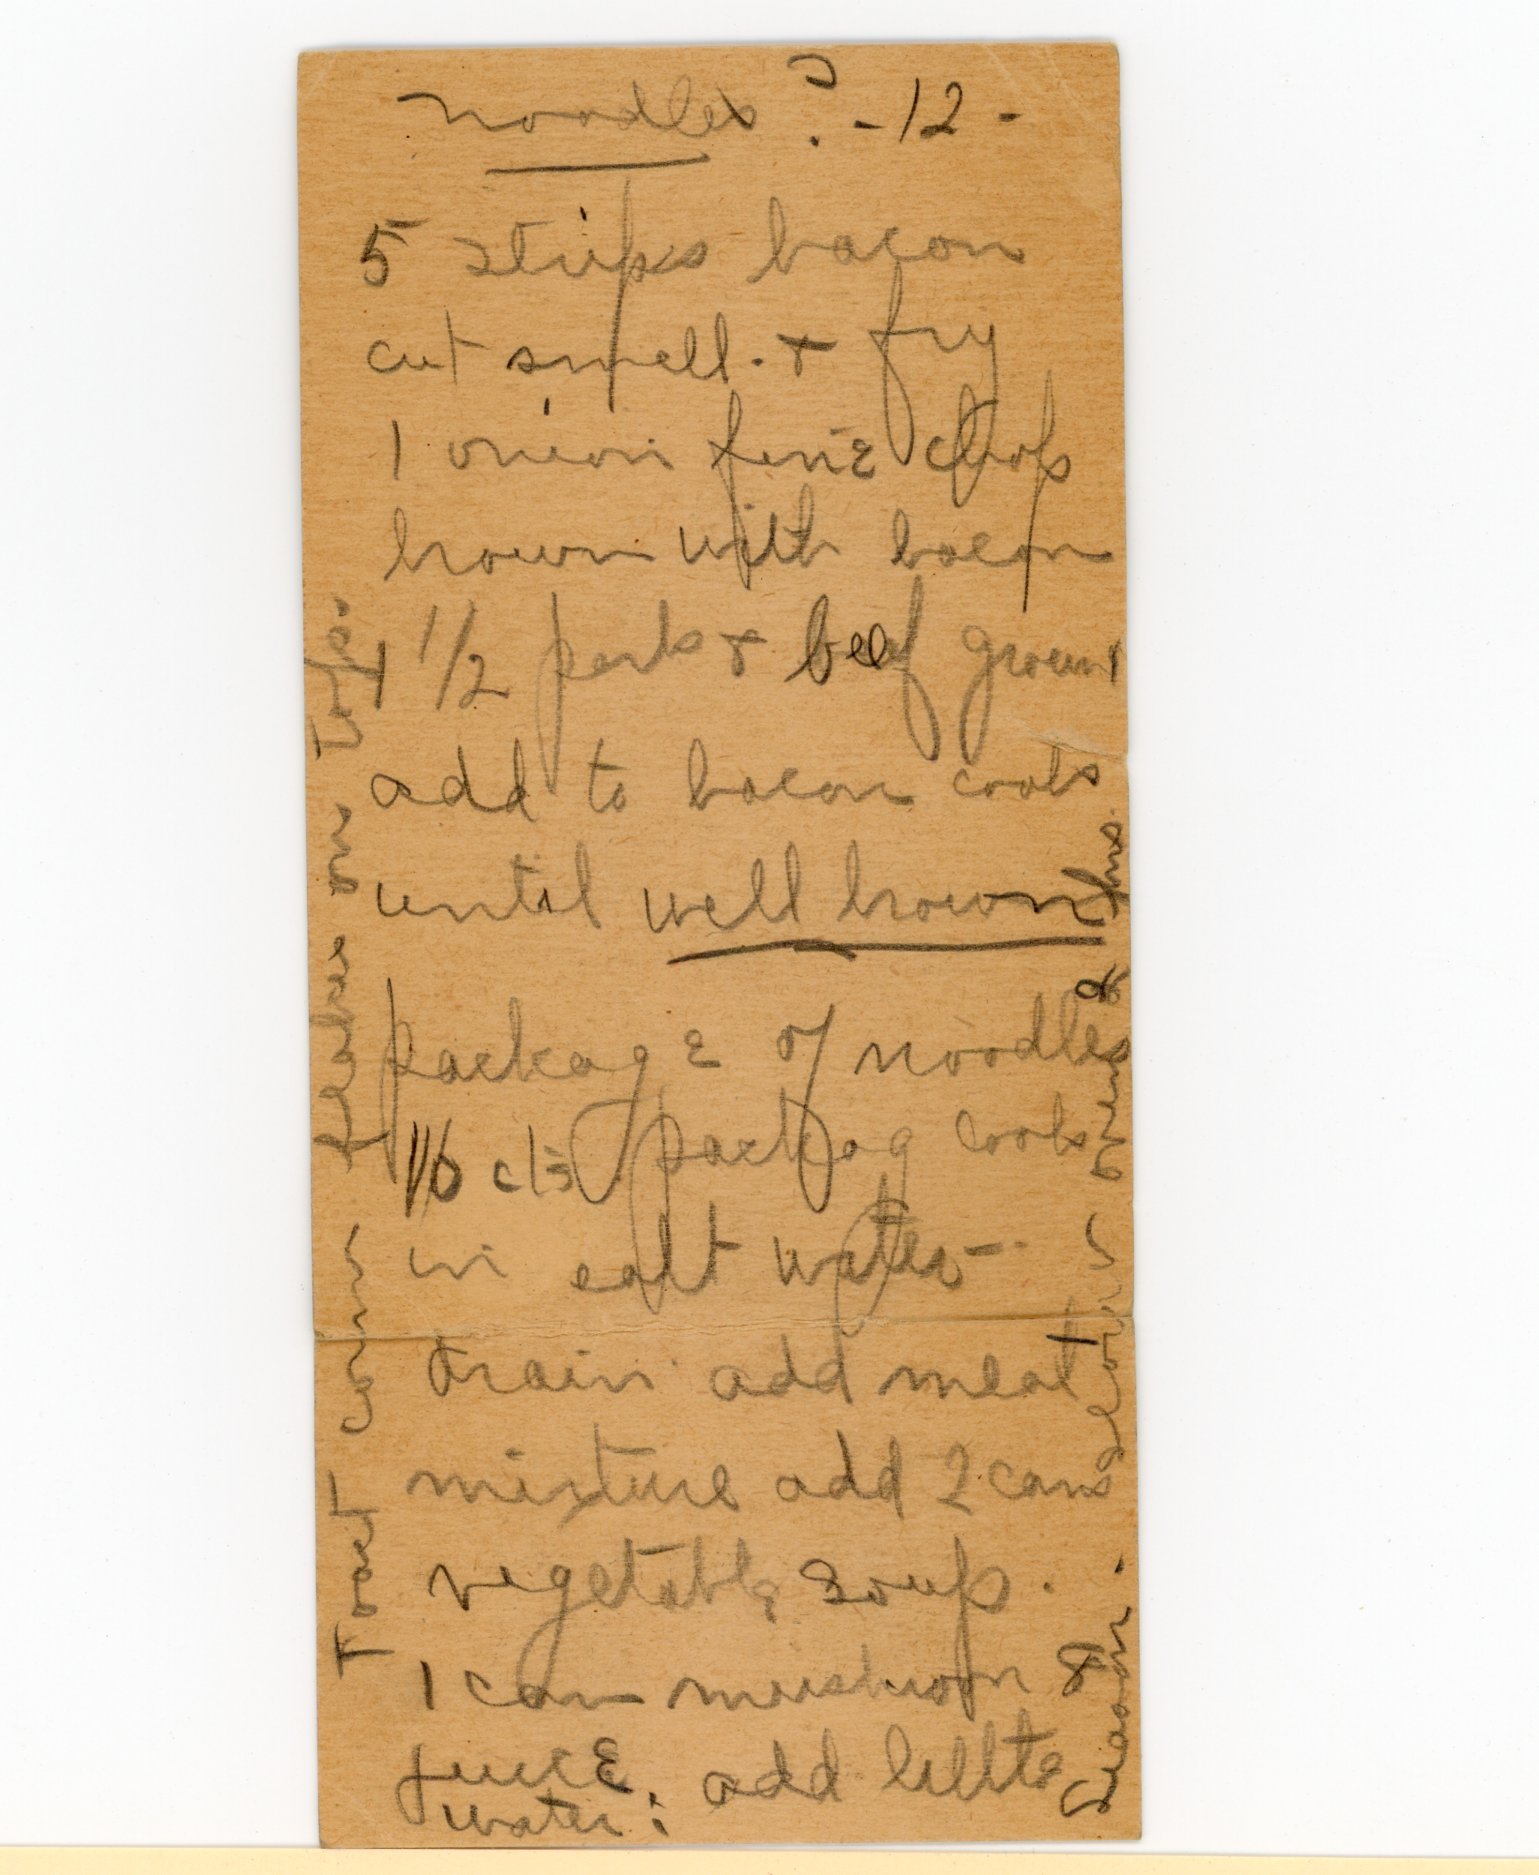 Noodles ? - 12 -
5 strips bacon
cut small. & fry
1 onion fine chop
brown with bacon
1 1/2 pork & beef ground
add to bacon cook
until well brown
package of noodles
16 cts package cook
in salt water -
drain add meat
mixture add 2 cans
vegetable soup.
1 can mushroom &
juice add little
water.
Season.
oven &
hrs.
Toast corn
flakes on top.